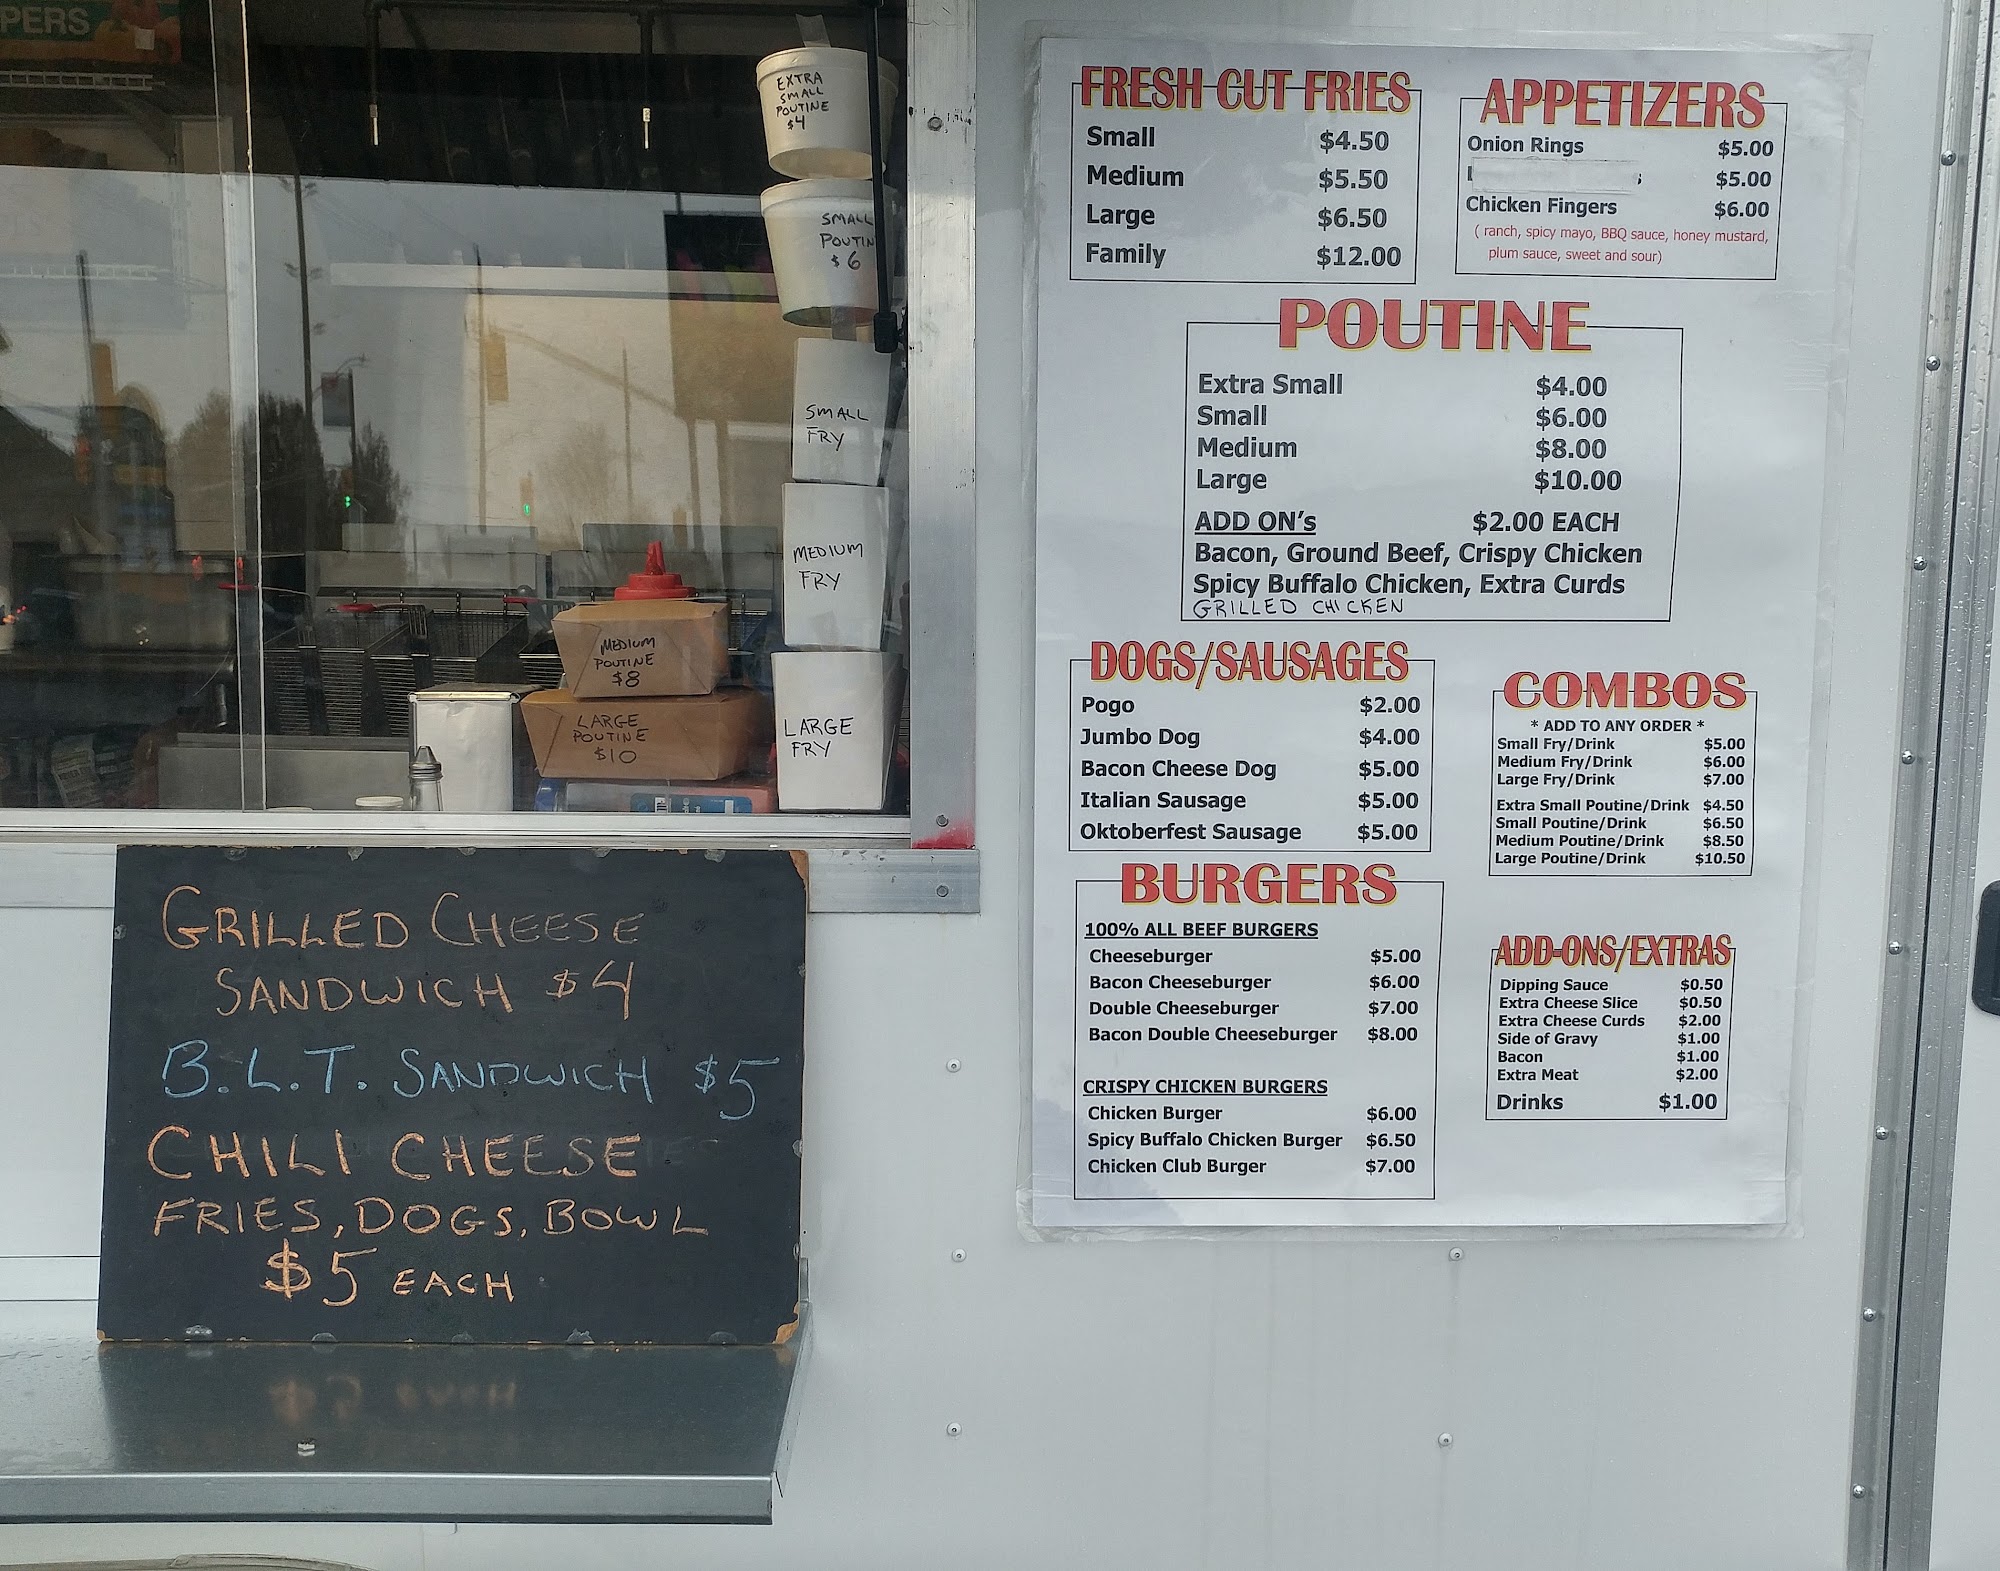 PERS
EXTRA
SMALL
POUTINE
$4
SMALL
POUTIN
$6
SMALL
FRY
MEDIUM
FRY
LARGE
FRY
MEDIUM
POUTINE
$8
LARGE
POUTINE
$10
GRILLED CHEESE
SANDWICH $4
B.L.T. SANDWICH $5
CHILI CHEESE
FRIES, DOGS, BOWL
$5 EACH
FRESH CUT FRIES
Small $4.50
Medium $5.50
Large $6.50
Family $12.00
APPETIZERS
Onion Rings $5.00
$5.00
Chicken Fingers $6.00
( ranch, spicy mayo, BBQ sauce, honey mustard,
plum sauce, sweet and sour)
POUTINE
Extra Small $4.00
Small $6.00
Medium $8.00
Large $10.00
ADD ON's $2.00 EACH
Bacon, Ground Beef, Crispy Chicken
Spicy Buffalo Chicken, Extra Curds
GRILLED CHICKEN
DOGS/SAUSAGES
Pogo $2.00
Jumbo Dog $4.00
Bacon Cheese Dog $5.00
Italian Sausage $5.00
Oktoberfest Sausage $5.00
COMBOS
* ADD TO ANY ORDER *
Small Fry/Drink $5.00
Medium Fry/Drink $6.00
Large Fry/Drink $7.00
Extra Small Poutine/Drink $4.50
Small Poutine/Drink $6.50
Medium Poutine/Drink $8.50
Large Poutine/Drink $10.50
BURGERS
100% ALL BEEF BURGERS
Cheeseburger $5.00
Bacon Cheeseburger $6.00
Double Cheeseburger $7.00
Bacon Double Cheeseburger $8.00
CRISPY CHICKEN BURGERS
Chicken Burger $6.00
Spicy Buffalo Chicken Burger $6.50
Chicken Club Burger $7.00
ADD-ONS/EXTRAS
Dipping Sauce $0.50
Extra Cheese Slice $0.50
Extra Cheese Curds $2.00
Side of Gravy $1.00
Bacon $1.00
Extra Meat $2.00
Drinks $1.00